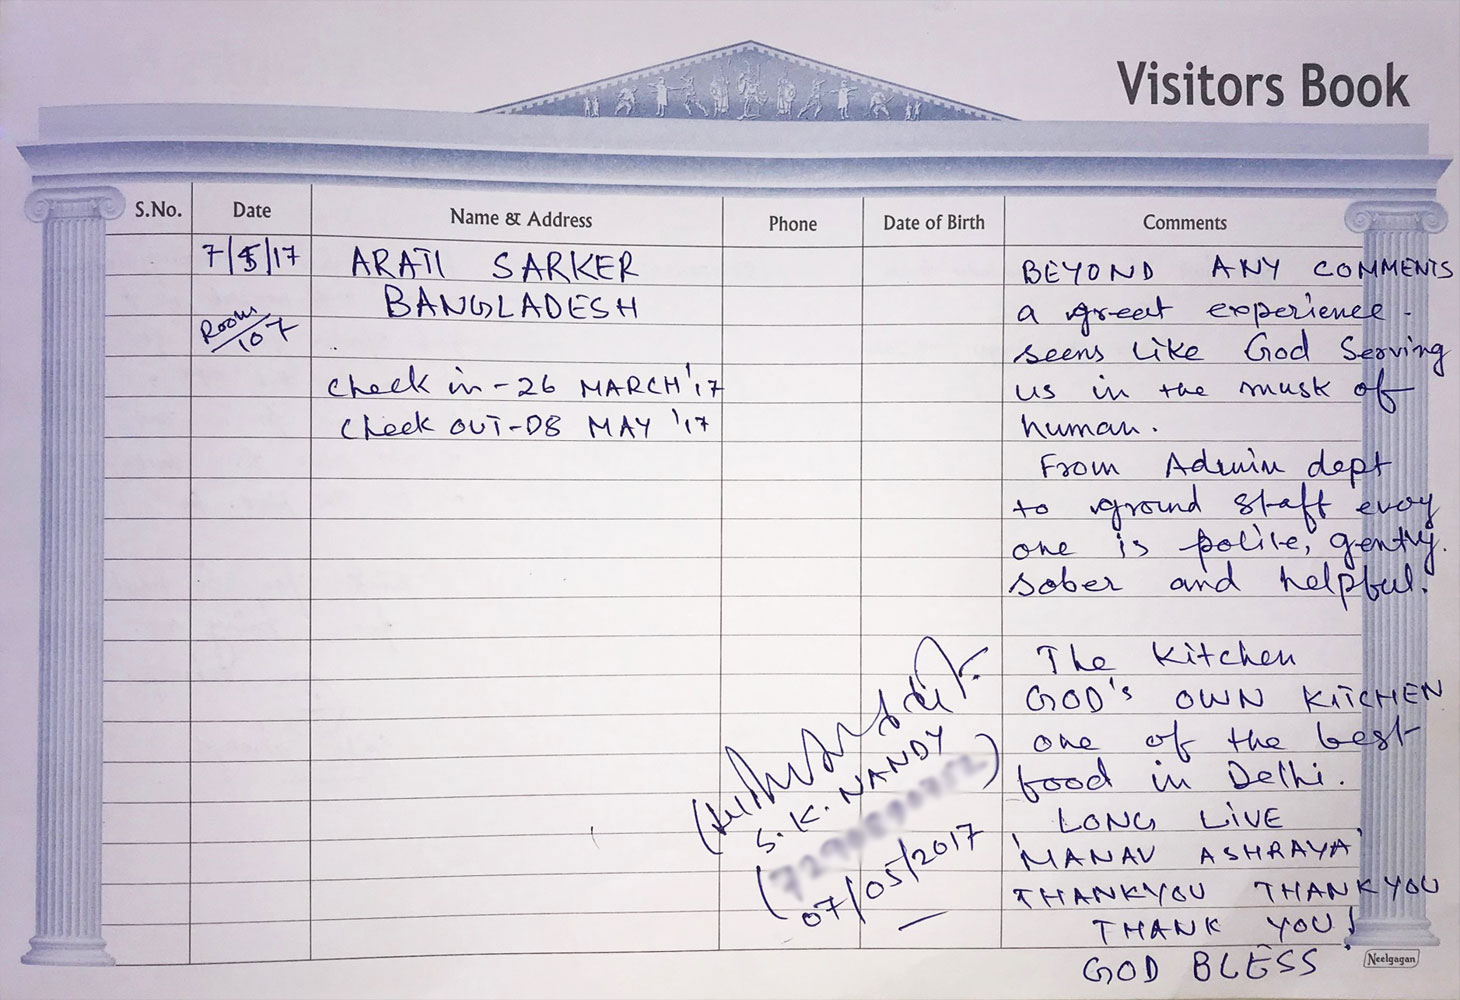 Visitors Book
S.No. Date Name & Address Phone Date of Birth Comments
7/5/17 ARATI SARKER
BANGLADESH
Room
107
Check in - 26 MARCH '17
Check OUT - 08 MAY '17
BEYOND ANY COMMENTS
a great experience.
seens Like God Serving
us in the musk of
human.
From Admin dept
to ground staff every
one is polite, gently.
sober and helpful.
The Kitchen
GOD'S OWN KITCHEN
one of the best
food in Delhi.
LONG LIVE
'MANAV ASHRAYA'
THANKYOU THANKYOU
THANK YOU!
GOD BLESS
S.K. NANDY
07/05/2017
Neelgagan